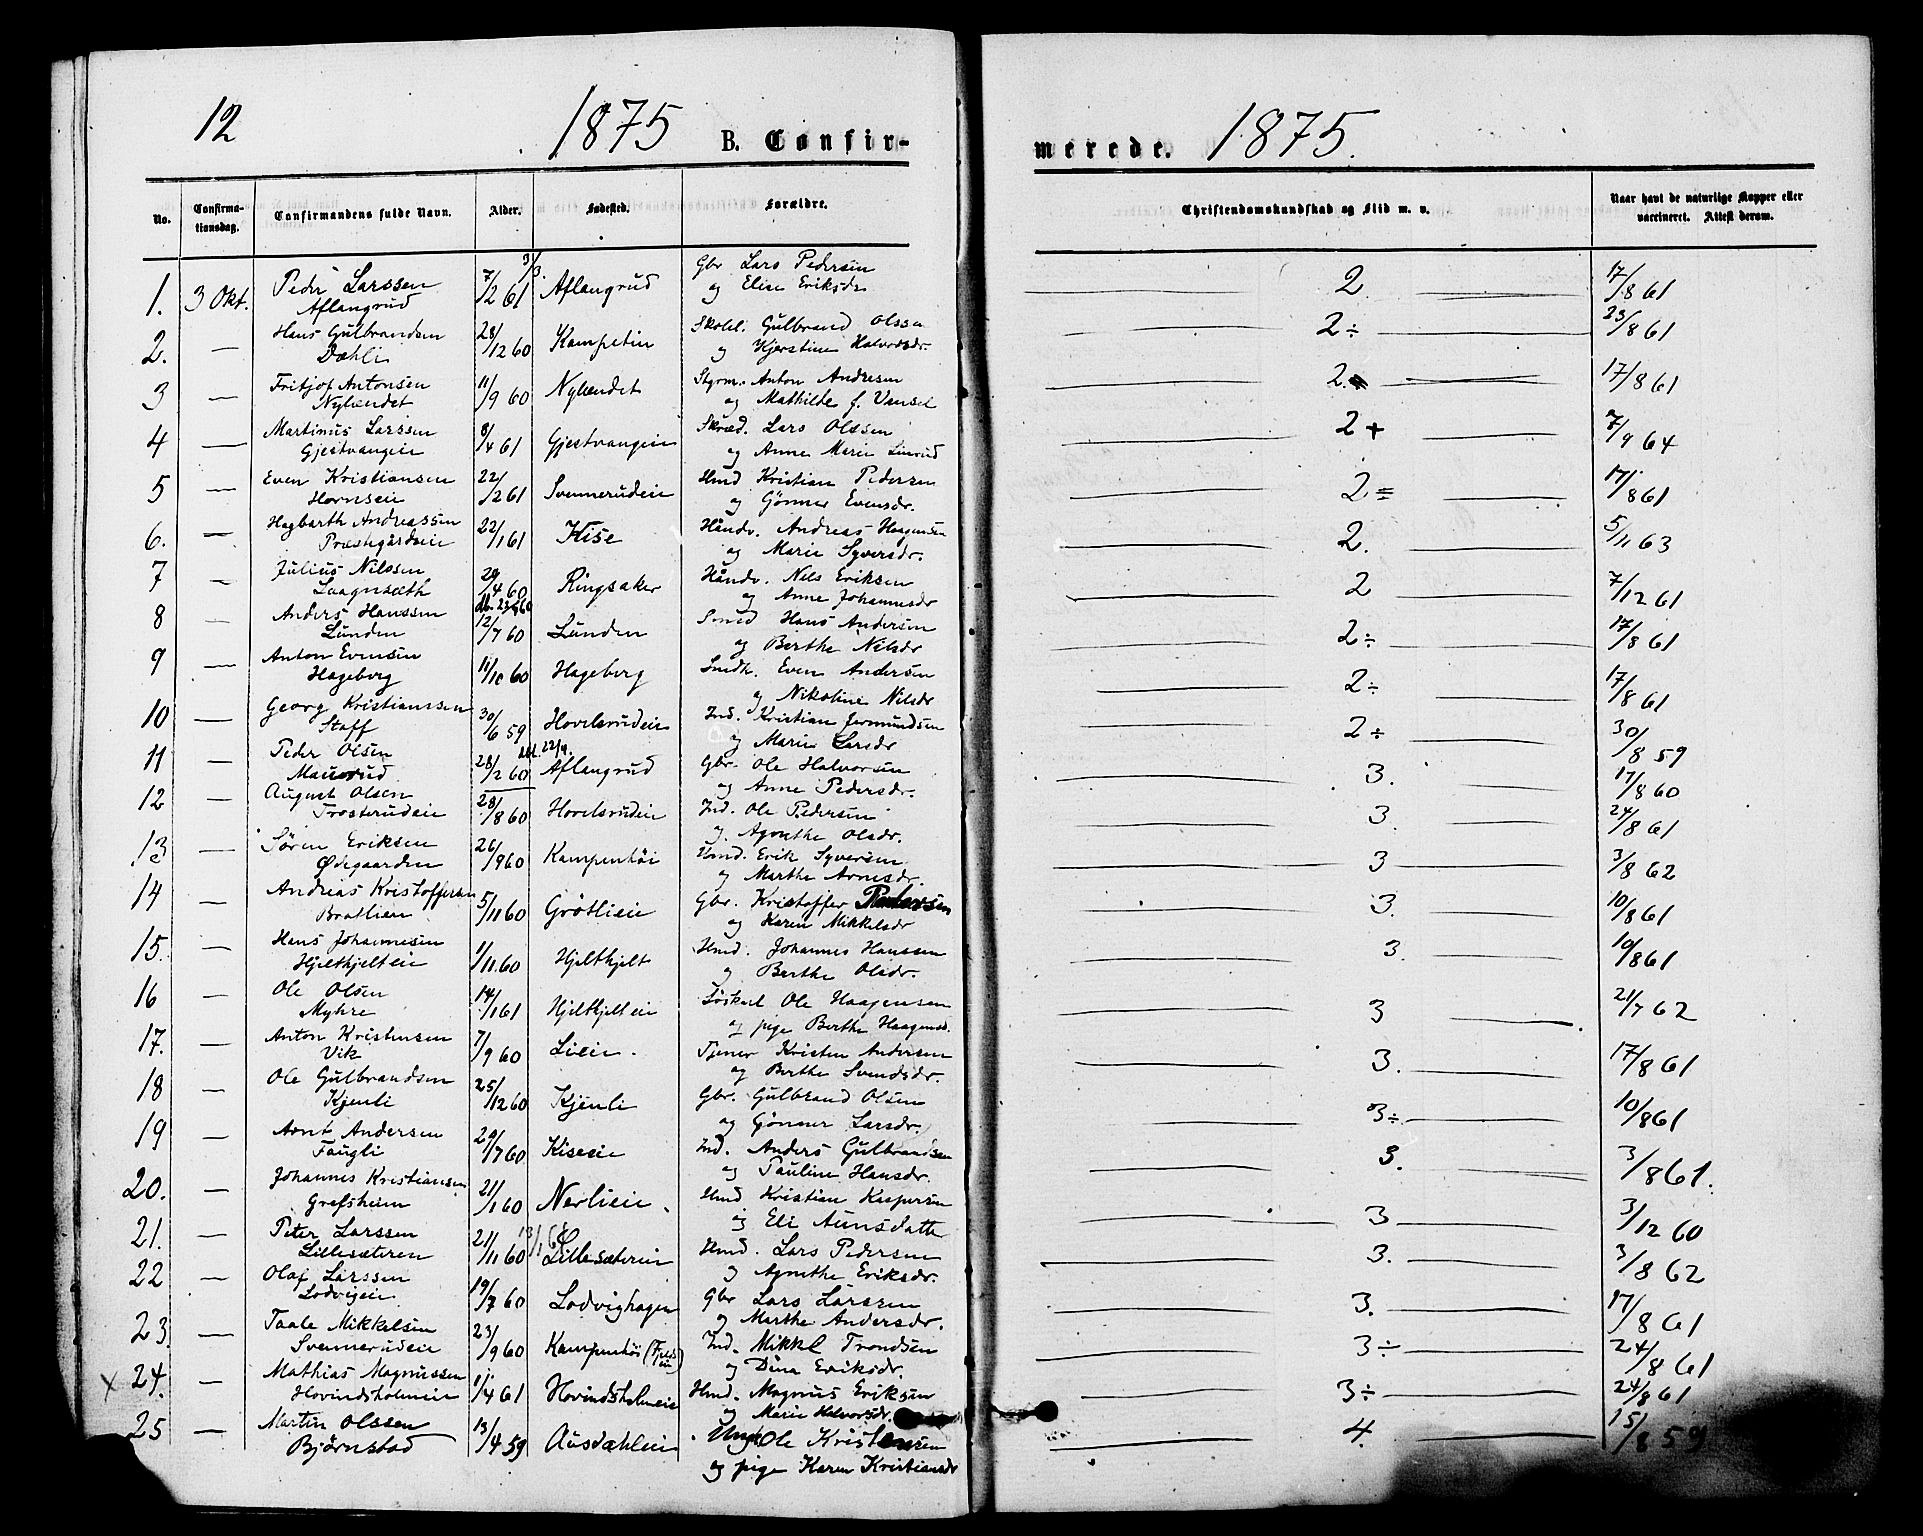 12
1875 B. Confir-
merede. 1875.
No. Confirma-tionsdag. Confirmandens fulde Navn. Alder. Fødested. Forældre. Christendomskundskab og Flid m. v. Naar havt de naturlige Kopper eller vaccineret. Attest derom.
1. 3 Okt. Peder Larssen 7/2 61 3/3. Aflangrud Gbr Lars Pedersen 2 17/8 61
Aflangrud og Elise Eriksdr
2. — Hans Gulbrandsen 28/12 60 Kampetin Skolel. Gulbrand Olssen 2÷ 23/8 61
Dæhli og Kjerstine Halvorsdr.
3 — Fritjof Antonsen 11/9 60 Nylændet Styrm. Anton Andresen 2 17/8 61
Nylændet og Mathilde f.
4 — Martinus Larssen 8/4 61 Gjestvangeie Skræd. Lars Olssen 2+ 7/9 64
Gjestvangeie og Anne Marie
5 — Even Kristiansen 22/2 61 Svennerudeie Hmd Kristian Pedersen 2= 17/8 61
Hornseie og Gønner Evensdr.
6. — Hagbarth Andreassen 22/1 61 Kise Håndv. Andreas Haagensen 2. 5/11 63
Præstegårdseie og Marie Syversdr.
7 — Julius Nilssen 29/4 60 Ringsaker Håndv. Nils Eriksen 2 7/12 61
Laagnsæth og Anne Johannesdr
8 — Anders Hanssen 12/7 60 Lunden Smed Hans Andersen 2÷ 17/8 61
Lunden og Berthe Nilsdr
9 — Anton Evensen 11/10 60 Hageberg Smedk. Even Andersen 2÷ 17/8 61
Hageberg og Nikoline Nilsdr
10 — Georg Kristianssen 30/6 59 Hovelsrudeie Ind. Kristian Jermundsen 2÷ 30/8 59
Staff og Marie Larsdr
11 — Peder Olsen 28/2 60 22/4. Aflangrud Gbr. Ole Halvorsen 3. 17/8 60
Mausrud og Anne Pedersdr.
12 — August Olsen 28/8 60 Hovelsrudeie Ind. Ole Pedersen 3. 24/8 61
Trosterudeie og Agnethe Olsdr.
13 — Søren Eriksen 26/9 60 Kampenhøi Hmd. Erik Syversen 3 3/8 62
Ødegaarden og Marthe Arnesdr.
14 — Andreas Kristoffersen 5/11 60 Grøtlieie Gbr. Kristoffer Pedersen 3. 10/8 61
Bratlien og Karen Mikkelsdr
15. — Hans Johannesen 1/11 60 Hjeltkjelt Hmd. Johannes Hanssen 3. 10/8 61
Hjeltkjelteie og Berthe Olsdr.
16 — Ole Olsen 14/1 61 Hjeltkjelteie Ole Haagensen 3 21/7 62
Myhre og pige Berthe Haagensd.
17. — Anton Kristensen 7/9 60 Lieie. Tjener Kristen Andersen 3. 17/8 61
Vik og Berthe Svendsdr.
18 — Ole Gulbrandsen 25/12 60 Kjenli Gbr. Gulbrand Olsen 3÷ 10/8 61
Kjenli og Gønner Larsdr.
19 — Arnt Andersen 29/7 60 Kiseeie Ind. Anders Gulbrandsen 3. 3/8 61.
Faugli og Pauline Hansdr.
20. — Johannes Kristiansen 21/1 60 Nerlieie. Hmd Kristian Kaspersen 3 3/12 60
Grefsheim og Eli Aunsdatte
21. — Peter Larssen 21/11 60 13/1 Lillesæterein Hmd. Lars Pedersen 3. 3/8 62
Lillesæteren og Agnethe Eriksdr.
22 — Olaf Larssen 19/7 60 Lodvighagen Gbr Lars Larssen 3. 17/8 61
Lodvigeie og Marthe Andersdr.
23 — Taale Mikkelsen 23/9 60 Kampenhøi Ind. Mikkel Trondsen 3÷ 24/8 61
Svennerudeie og Dina Eriksdr.
x 24. — Mathias Magnussen 1/4 61 Hovindsholmeie Hmd. Magnus Eriksen 3÷ 24/8 61
Hovindsholmeie og Marie Halvorsdr.
25 — Martin Olssen 13/4 59 Ausdahleie Ungk. Ole Kristensen 4. 15/8 59
Bjørnstad og pige Karen Kristiansdr